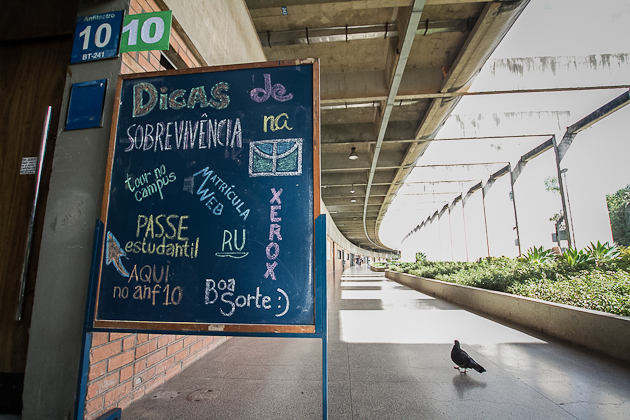 Anfiteatro
10
BT-241
10
Dicas de
SOBREVIVÊNCIA na
tour no
campus
MATRÍCULA
Web
XEROX
PASSE
estudantil
RU
AQUI
no anf 10
Boa
Sorte :)